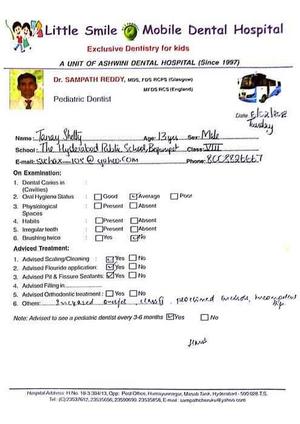 Little Smile Mobile Dental Hospital
Exclusive Dentistry for kids
A UNIT OF ASHWINI DENTAL HOSPITAL (Since 1997)
Dr. SAMPATH REDDY, MDS, FDS RCPS (Glasgow)
MFDS RCS (England)
Pediatric Dentist
Date
Tuesday
Name: Tanay Shetty Age: 13yrs Sex: Male
School: The Hyderabad Public School, Begumpet Class: VIII
E-mail: Phone:
On Examination:
1. Dental Caries in (Cavities)
2. Oral Hygiene Status : Good Average Poor
3. Physiological Spaces : Present Absent
4. Habits : Present Absent
5. Irregular teeth : Present Absent
6. Brushing twice : Yes No
Adviced Treatment:
1. Advised Scaling/Cleaning : Yes No
2. Advised Flouride application: Yes No
3. Advised Pit & Fissure Sealants: Yes No
4. Advised Filling in
5. Advised Orthodontic treatment : Yes No
6. Others: Increased overjet, class II, proclined incisors, incompetent lip
Note: Advised to see a pediatric dentist every 3-6 months Yes No
Hospital Address: H.No. 10-3-304/13, Opp: Post Office, Humayunnagar, Masab Tank, Hyderabad - 500 028 T.S.